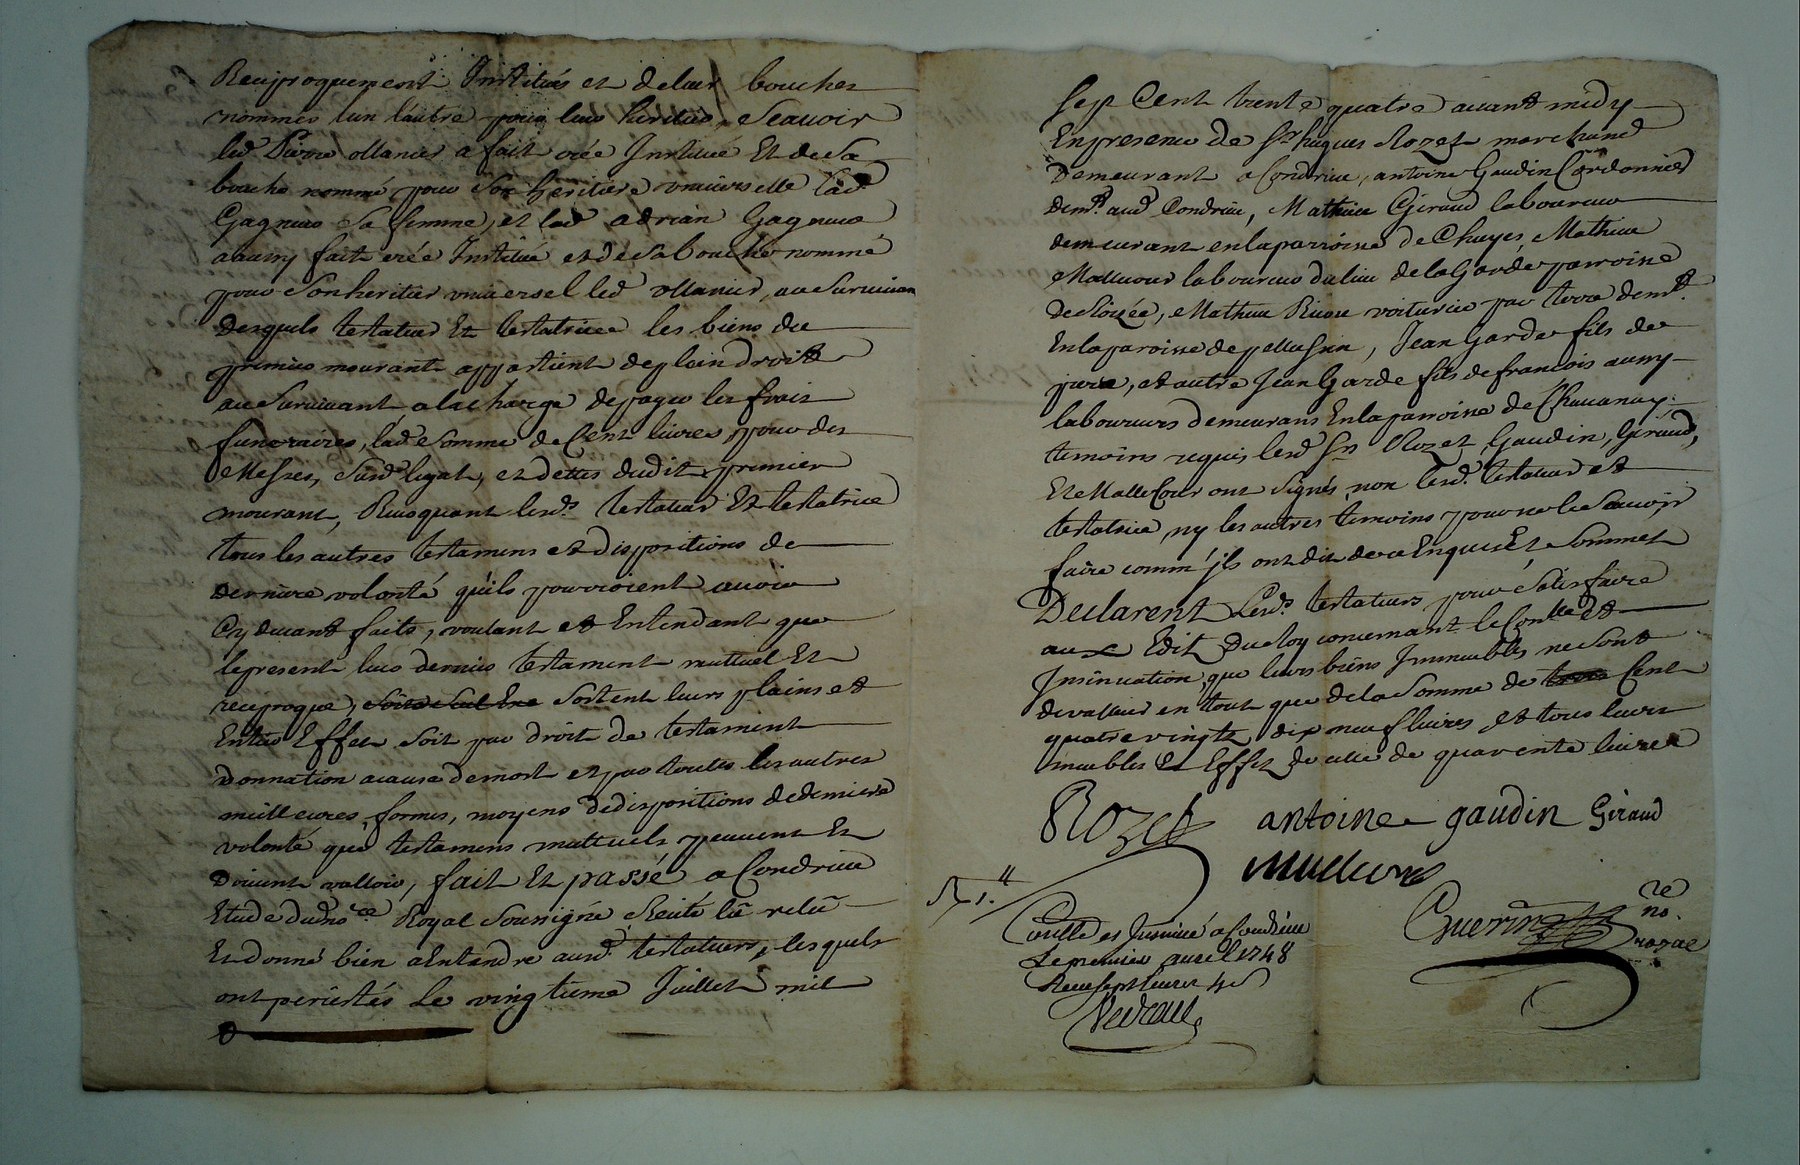 Reciproquement Institués et de leur bouches
nommés lun lautre pour leurs heritiers, Scauoir
led Pierre ollanier a fait créé Institué Et de Sa
bouche nommé pour Son heritiere vniuerselle lad.
Gagneur Sa femme, et lad adrian Gagneur
aaussy fait créé Institué et de Sa bouche nommé
pour Son heritier vniuersel led ollanier, au Suruiuan
desquels testateur Et testatrice les biens du
premier mourant appartient de plein droitt
au Suruiuant alacharge de payer les frais
funeraires, lad. Somme de Cent liures pour des
Messes, Susd. legat, et dettes dudit premier
mourant, Reuoquant lesds. testateur Et testatrice
tous les autres testamens et dispositions de
derniere volonté quils pourroient auoir
Cy deuant faits, voulant et Entendant que
lepresent leur dernier testament mutuel Et
reciproque, Sortent leurs plains et
Entier Effet Soit par droit de testament
donnation acause de mort et par toutes les autres
meilleures formes, moyens de dispositions de derniere
volonté que testamens mutuels peuuent Et
doiuent valloir, fait Et passé a Condrieu
Etude dudno.re Royal Soussigné Recité lû relû
Et donné bien aEntandre ausd. testateurs, lesquels
ont persistés Le vingtieme Juillet mil
Sept Cent trente quatre auant midy
En presence de Sr. hugues Rozet marchand
Demeurant a Condrieu, antoine Gaudin Cordonnier
demt. aud Condrieu, Mathieu Giraud laboureur
demeurant en la parroisse de Chuyes, Mathieu
Mallecour laboureur du lieu de la Garde parroise
de Roizée, Mathieu Riuou voiturier par terre demt.
En la paroisse de pellussin, Jean Garde fils de
, et autre Jean Garde fils de francois aussy
laboureurs demeurans En la parroisse de Chauanay
temoins requis, lesd Srs Rozet, Gaudin, Giraud,
Et Mallecour ont Signés, non lesd. testateur et
testatrice, ny les autres temoins pour ne le Scauoir
faire comm' jls ont dit de ce Enquis Et Sommés
Declarent Lesds. testateurs pour Satisfaire
aux Edit du Roy concernant le Conlle et
Insinuation, que leurs biens Immeubles ne Sont
de valleur en tout que de la Somme de trois Cent
quatre vingts dix neuf liures, et tous leurs
meubles Et Effets de celle de quarente liures
Rozet antoine gaudin Giraud
Mallecour
Guerin no.re royal
Conllé et Insinué a Condrieu
Le premier auril 1748
Receu Sept liures 4 s